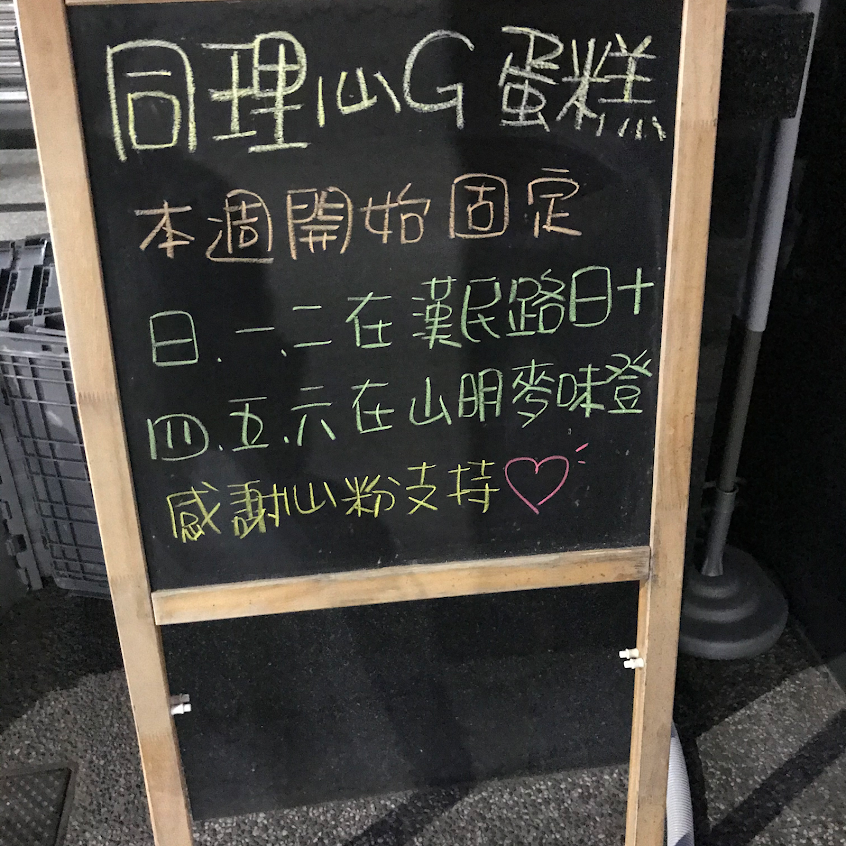 同理仙G蛋糕
本週開始固定
日.一.二在漢民路日十
四.五.六在山明麥味登
感謝仙粉支持♡